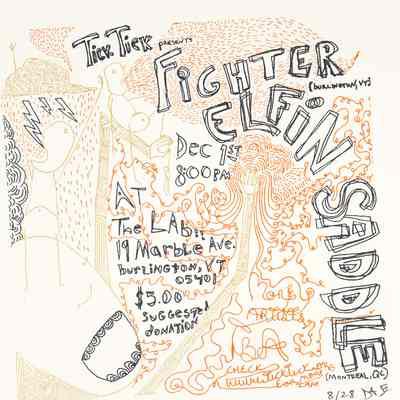 TICK TICK PRESENTS
FIGHTER
(BURLINGTON, VT)
ELFIN
SADDLE
(MONTREAL, QC)
Dec 1ST
8:00 PM
AT
The LAB!!
19 Marble Ave.
BURLINGTON, VT
05401
$5.00
SUGGESTED
DONATION
CHECK
8/28